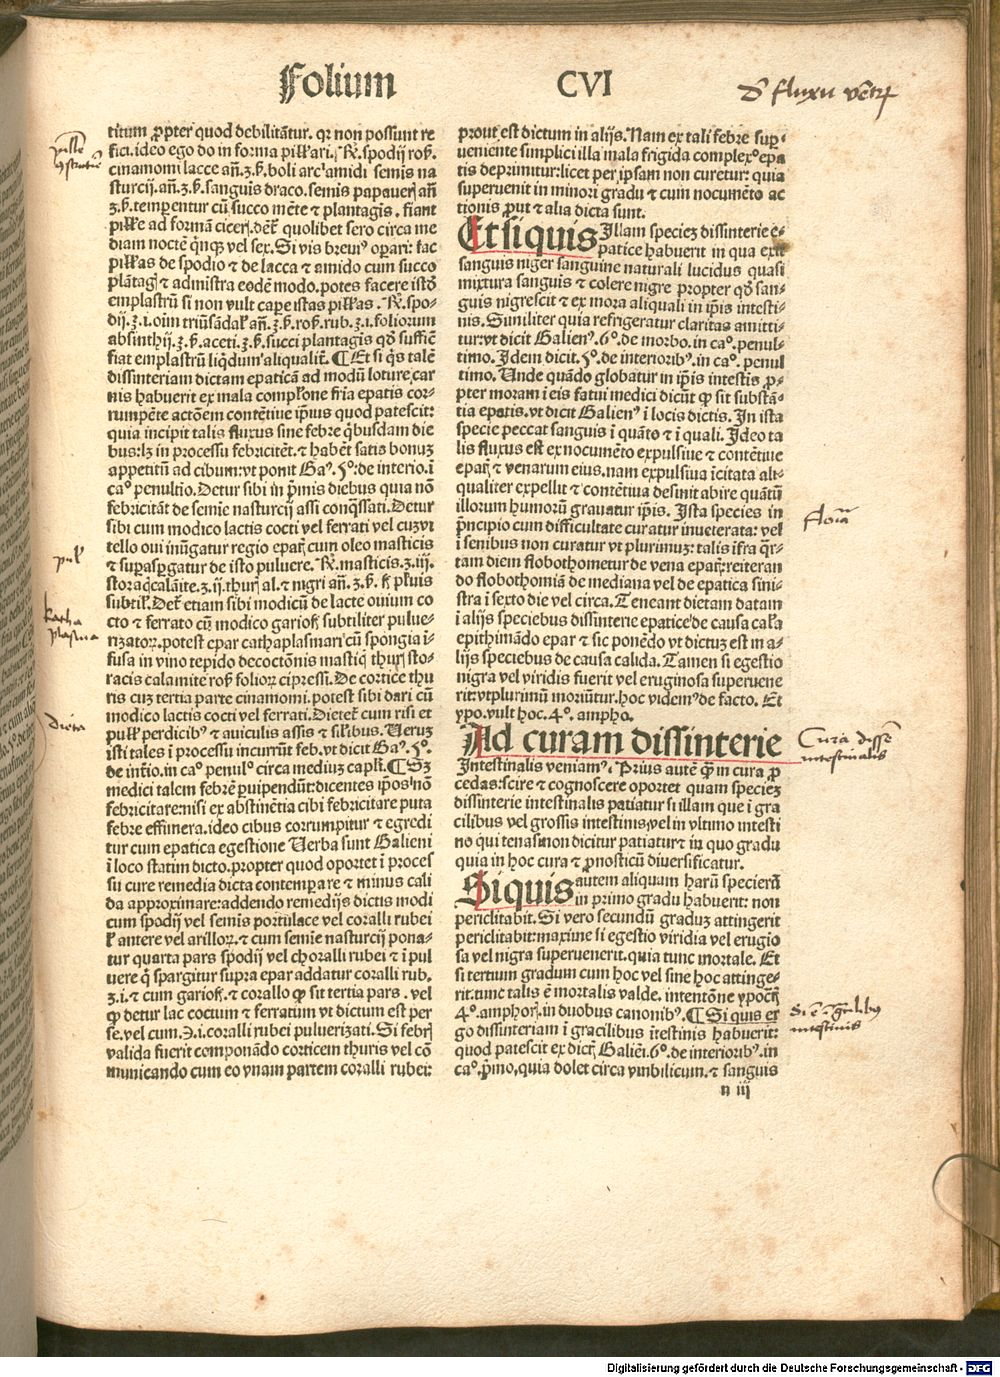 Folium CVI
đ fluxu vētrꝭ
titum ꝓpter quod debilitātur. qꝛ non possunt re
fici. ideo ego do in forma piłłari. ℞. spodij roß.
cinamomi lacce añ. ʒ.ß. boli arc̄ amidi semis na
sturcij. añ. ʒ.ß. sanguis draco. semis papauerꝭ añ
ʒ.ß. temperentur cū succo mēte ⁊ plantagis. fiant
piłłe ad formā cicerꝭ. det̄ quolibet sero circa me
diam noctē qͥnqꝫ vel sex. Si vis breuiꝰ opari: fac
piłłas de spodio ⁊ de lacca ⁊ amido cum succo
plātagꝭ ⁊ administra eodē modo. potes facere istð
emplastrū si non vult cape istas piłłas. ℞. spo⸗
dij. ʒ.i. oīm triū sādał añ. ʒ.ß. roß. rub. ʒ.i. foliorum
absinthij. ʒ.ß. aceti. ʒ.ß. succi plantagis qð suffic̄
fiat emplastrū liqͥdum aliqualit̄. ¶ Et si qͥs talē
dissinteriam dictam epaticā ad modū loture car
nis habuerit ex mala complōne fria epatis cor⸗
rumpēte actōem contētiue ipsius quod patescit:
quia incipit talis fluxus sine febre qͥbusdam die
bus: lꝫ in processu febricitēt. ⁊ habēt satis bonuꝫ
appetitū ad cibum: vt ponit Gaꝰ. 5ᵒ. de interio. ī
caᵒ penultio. Detur sibi in pͥmis diebus quia nō
febricitāt de semie nasturcij assi conqͣssati. Detur
sibi cum modico lactis cocti vel ferrati vel cuꝫ vi
tello oui inūgatur regio eparꝭ cum oleo masticis
⁊ supaspgatur de isto puluere. ℞. masticis. ʒ.iij.
storac̄ calāite. ʒ.ij. thurꝭ al. ⁊ nigri añ. ʒ.ß. ꝼ pluis
subtił. Det̄ etiam sibi modicū de lacte ouium co
cto ⁊ ferrato cū modico garioꝼ subtiliter pulue⸗
rizatoꝝ. potest epar cathaplasmari cū spongia i⸗
fusa in vino tepido decoctōnis mastiqꝭ thurꝭ sto⸗
racis calamite roß folioꝝ cipressi. De cortice thu
ris cuꝫ tertia parte cinamomi. potest sibi dari cū
modico lactis cocti vel ferrati. Dietet̄ cum risi et
pułł perdicibꝰ ⁊ auiculis assis ⁊ silibus. Veruꝫ
isti tales ī processu incurrūt feb. vt dicit Gaꝰ. 5ᵒ.
de inťio. in caᵒ penulᵒ circa mediuꝫ capłi. ¶ Sꝫ
medici talem febrē puipendūt: dicentes ipos nō
febricitare: nisi ex abstinētia cibi febricitare puta
febre effimera. ideo cibus corrumpitur ⁊ egredi
tur cum epatica egestione Verba sunt Galieni
ī loco statim dicto. propter quod oportet ī proces
su cure remedia dicta contempare ⁊ minus cali
da approximare: addendo remedijs dictis modi
cum spodij vel semis portulace vel coralli rubei
ꝼ antere vel arilloꝝ. ⁊ cum semie nasturcij pona⸗
tur quarta pars spodij vel choralli rubei ⁊ ī pul
uere q̄ spargitur supra epar addatur coralli rub.
ʒ.i. ⁊ cum garioꝼ. ⁊ corallo ꝙ sit tertia pars. vel
ꝙ detur lac coctum ⁊ ferratum vt dictum est per
se. vel cum. ℈.i. coralli rubei puluerizati. Si febrꝭ
valida fuerit componādo corticem thuris vel cō
municando cum eo vnam partem coralli rubei:
prout est dictum in alijs. Nam ex tali febre sup⸗
ueniente simplici illa mala frigida complexᵒ epa
tis deprimitur: licet per ipsam non curetur: quia
superuenit in minori gradu ⁊ cum nocumēto ac
tionis ꝓut ⁊ alia dicta sunt.
Et si quis Illam specieꝫ dissinterie e⸗
patice habuerit in qua exit
sanguis niger sanguine naturali lucidus quasi
mixtura sanguis ⁊ colere nigre propter qð san⸗
guis nigrescit ⁊ ex mora aliquali in ipsis intesti⸗
nis. Similiter quia refrigeratur claritas amitti⸗
tur: vt dicit Galienꝰ. 6ᵒ. de morbo. in caᵒ. penul⸗
timo. Idem dicit. 5ᵒ. de interioribꝰ. in caᵒ. penul
timo. Unde quādo globatur in ipsis intestis ꝓ⸗
pter moram ī eis fatui medici dicūt ꝙ sit substā⸗
tia epatis. vt dicit Galienꝰ ī locis dictis. In ista
specie peccat sanguis ī quāto ⁊ ī quali. Ideo ta
lis fluxus est ex nocumēto expulsiue ⁊ contētiue
eparꝭ ⁊ venarum eius. nam expulsiua īcitata ali⸗
qualiter expellit ⁊ contētiua desinit abire quātū
illorum humorū grauatur ipsis. Ista species in
pͥncipio cum difficultate curatur inueterata: vel
ī senibus non curatur vt plurimuꝫ: talis īfra qͣr⸗
tam diem flobothometur de vena eparꝭ reiteran
do flobothomiā de mediana vel de epatica sini⸗
stra ī sexto die vel circa. Teneant dietam datam
ī alijs speciebus dissinterie epatice de causa cała
epithimādo epar ⁊ sic ponēdo vt dictuꝫ est in a⸗
lijs speciebus de causa calida. Tamen si egestio
nigra vel viridis fuerit vel eruginosa superuene
rit: vt plurimū moriūtur. hoc videmꝰ de facto. Et
ypo. vult hoc. 4ᵒ. ampho.
Ad curam dissinterie
Intestinalis veniamꝰ. Prius autē qͣ̄ in cura ꝓ
cedas: scire ⁊ cognoscere oportet quam specieꝫ
dissinterie intestinalis patiatur si illam que ī gra
cilibus vel grossis intestinis, vel in vltimo intesti
no qui tenasmon dicitur patiatur ⁊ in quo gradu
quia in hoc cura ⁊ ꝓnosticū diuersificatur.
Si quis autem aliquam harū specierū
in primo gradu habuerit: non
periclitabit. Si vero secundū graduꝫ attingerit
periclitabit: maxime si egestio viridia vel erugio
sa vel nigra superuenerit. quia tunc mortale. Et
si tertium gradum cum hoc vel sine hoc attinge⸗
rit: tunc talis ē mortalis valde. intentōne ypocꝝ
4ᵒ. amphorꝭ. in duobus canonibꝰ. ¶ Si quis er
go dissinteriam ī gracilibus ītestinis habuerit:
quod patescit ex dictꝭ Galieī. 6ᵒ. de interioribꝰ. in
caᵒ. pͥmo, quia dolet circa vmbilicum. ⁊ sanguis
n iij
puł
katha
plasma
Dieta
Cura dissē
intestinalis
Si ē ī gͣlibꝰ
intestinis
Digitalisierung gefördert durch die Deutsche Forschungsgemeinschaft - DFG